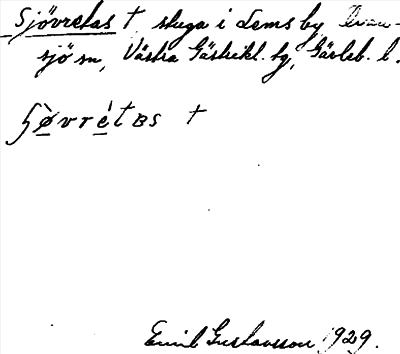 Sjövretas † stuga i Lems by Svan-
sjö sn, Västra Gästrikl. tg, Gävleb. l.
ʃø̀vrétBS †
Emil Gustavsson 1929.